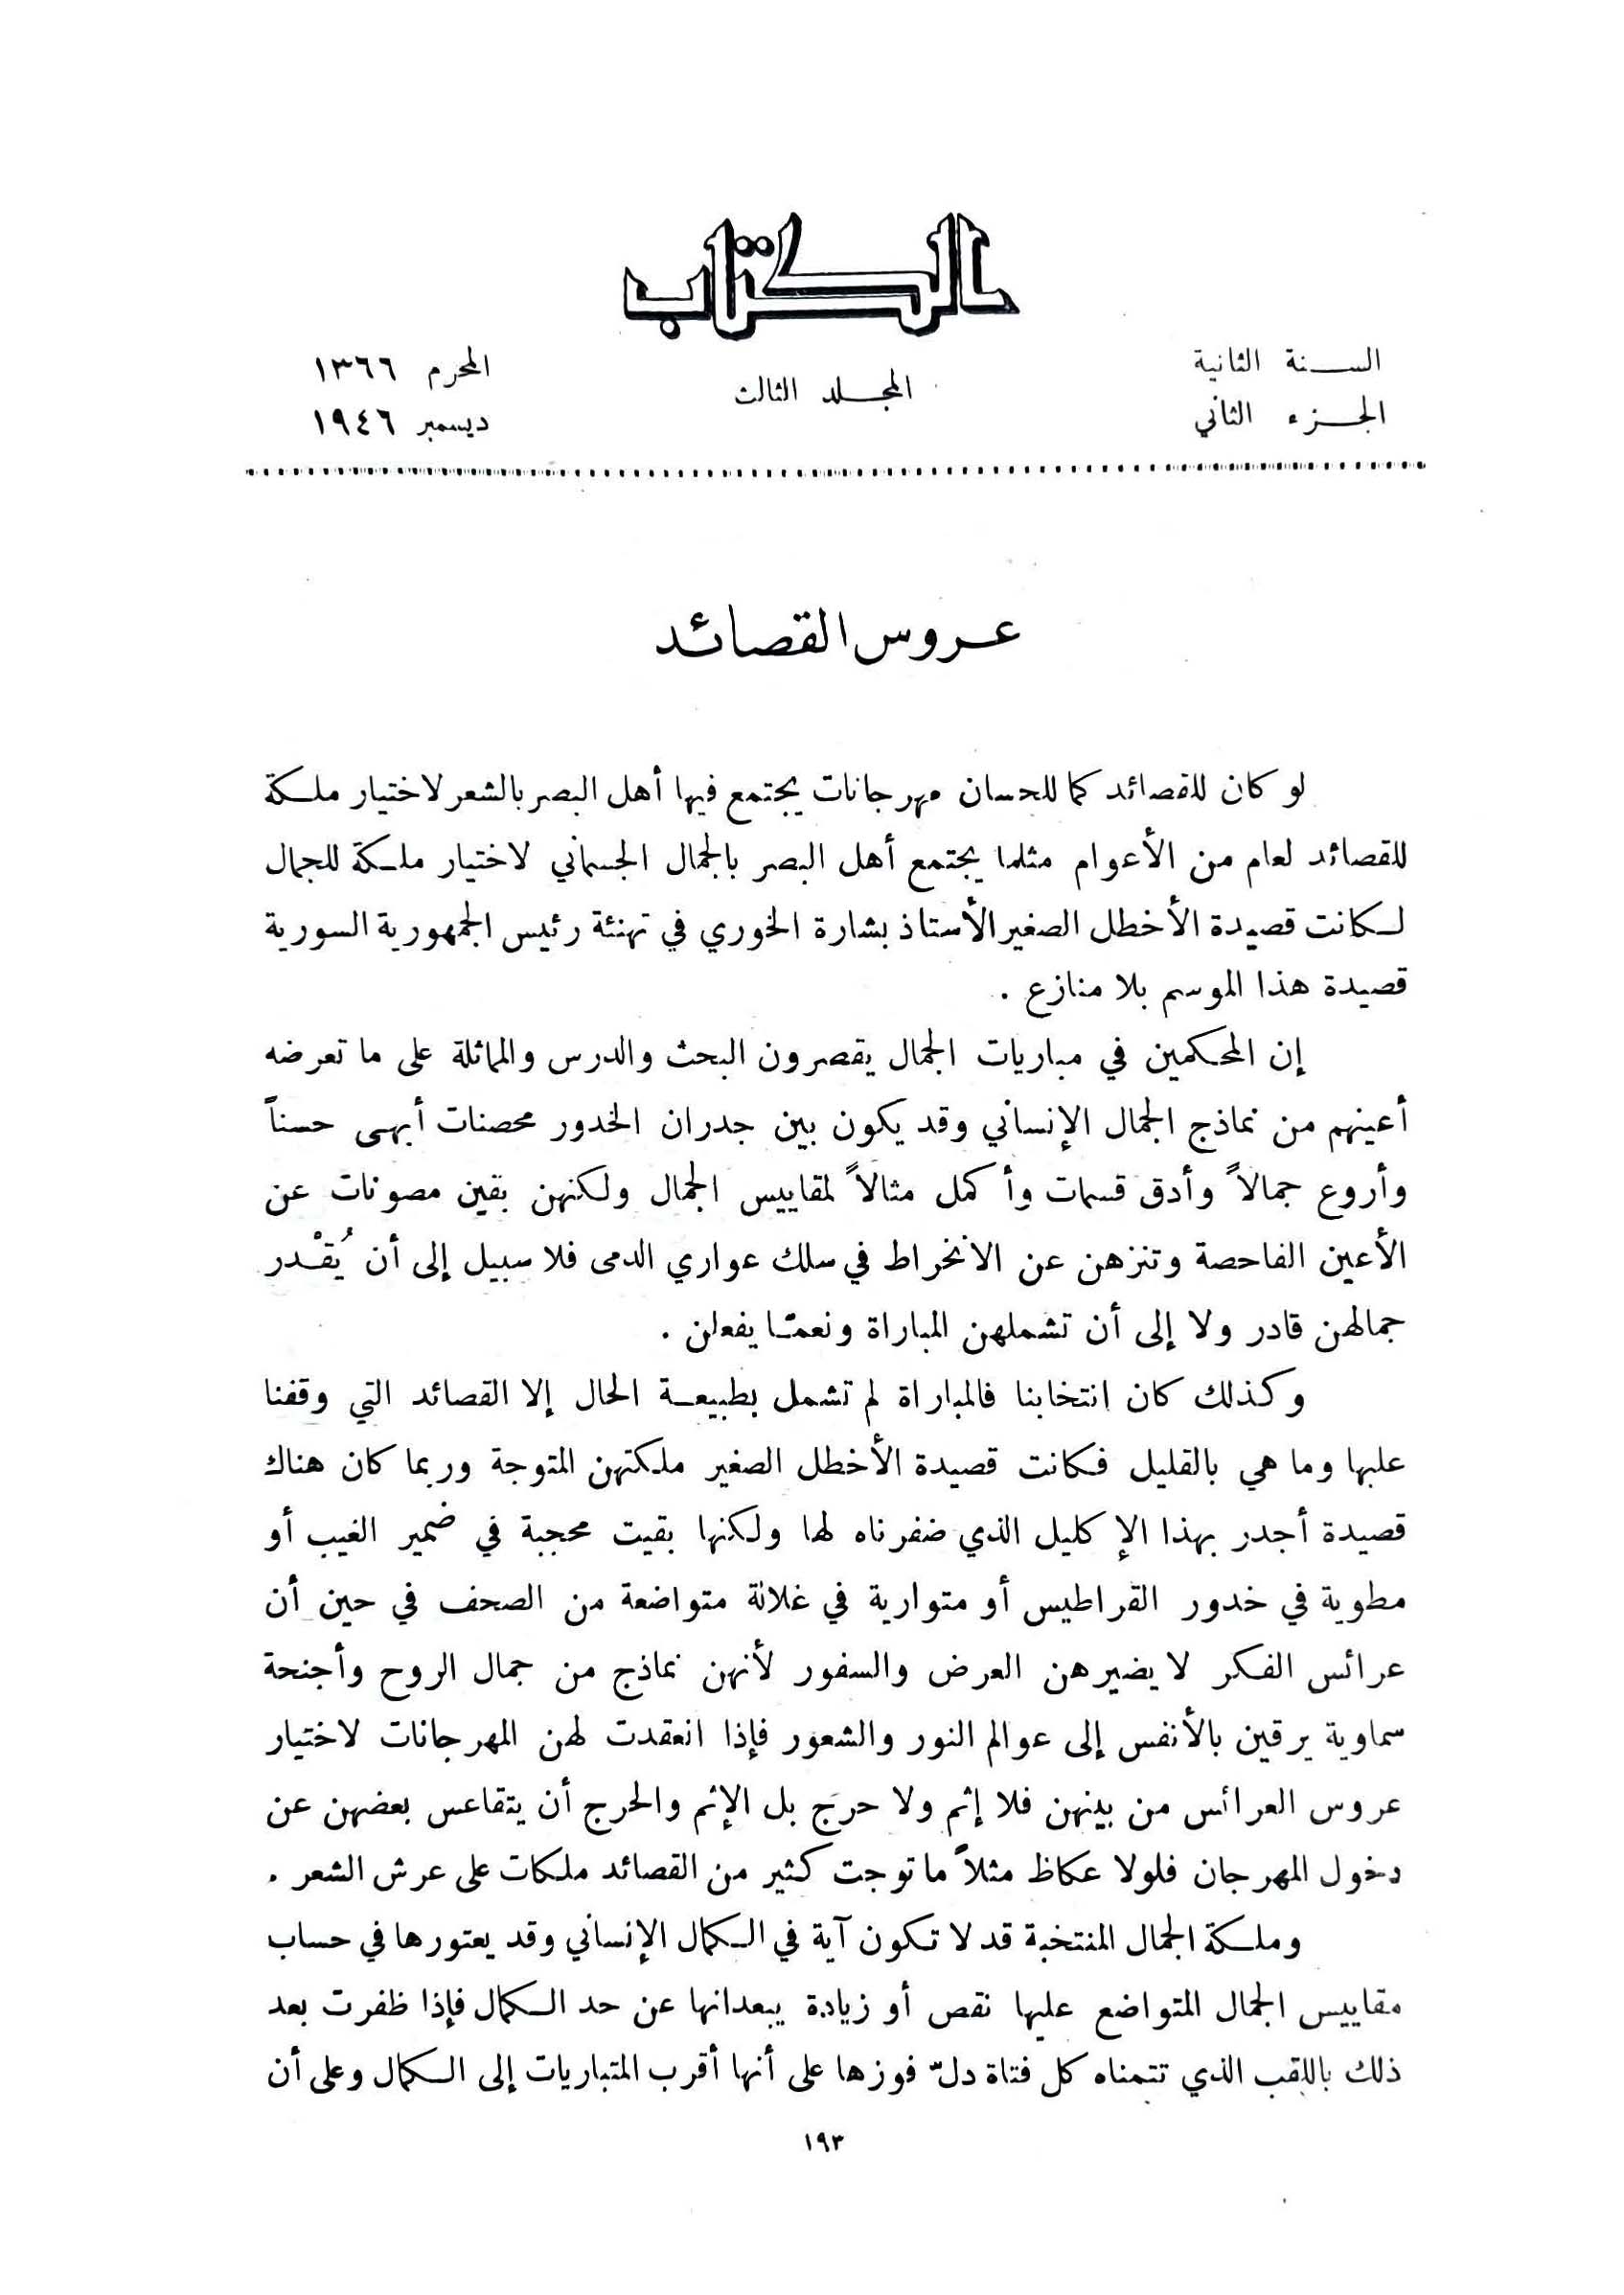 الكتاب
السنة الثانية
الجزء الثاني
المجلد الثالث
المحرم ١٣٦٦
ديسمبر ١٩٤٦
عروس القصائد
لو كان للقصائد كما للحسان مهرجانات يجتمع فيها أهل البصر بالشعر لاختيار ملكة
للقصائد لعام من الأعوام مثلما يجتمع أهل البصر بالجمال الجسماني لاختيار ملكة للجمال
لكانت قصيدة الأخطل الصغير الأستاذ بشارة الخوري في تهنئة رئيس الجمهورية السورية
قصيدة هذا الموسم بلا منازع .
إن المحكمين في مباريات الجمال يقصرون البحث والدرس والمماثلة على ما تعرضه
أعينهم من نماذج الجمال الإنساني وقد يكون بين جدران الخدور محصنات أبهى حسناً
وأروع جمالاً وأدق قسمات وأكمل مثالاً لمقاييس الجمال ولكنهن بقين مصونات عن
الأعين الفاحصة وتنزهن عن الانخراط في سلك عواري الدمى فلا سبيل إلى أن يُقْدر
جمالهن قادر ولا إلى أن تشملهن المباراة ونعمّا يفعلن .
وكذلك كان انتخابنا فالمباراة لم تشمل بطبيعة الحال إلا القصائد التي وقفنا
عليها وما هي بالقليل فكانت قصيدة الأخطل الصغير ملكتهن المتوجة وربما كان هناك
قصيدة أجدر بهذا الإكليل الذي ضفرناه لها ولكنها بقيت محجبة في ضمير الغيب أو
مطوية في خدور القراطيس أو متوارية في غلالة متواضعة من الصحف في حين أن
عرائس الفكر لا يضيرهن العرض والسفور لأنهن نماذج من جمال الروح وأجنحة
سماوية يرقين بالأنفس إلى عوالم النور والشعور فإذا انعقدت لهن المهرجانات لاختيار
عروس العرائس من بينهن فلا إثم ولا حرج بل الإثم والحرج أن يتقاعس بعضهن عن
دخول المهرجان فلولا عكاظ مثلاً ما توجت كثير من القصائد ملكات على عرش الشعر .
وملكة الجمال المنتخبة قد لا تكون آية في الكمال الإنساني وقد يعتورها في حساب
مقاييس الجمال المتواضع عليها نقص أو زيادة يبعدانها عن حد الكمال فإذا ظفرت بعد
ذلك باللقب الذي تتمناه كل فتاة دلّ فوزها على أنها أقرب المتباريات إلى الكمال وعلى أن
١٩٣